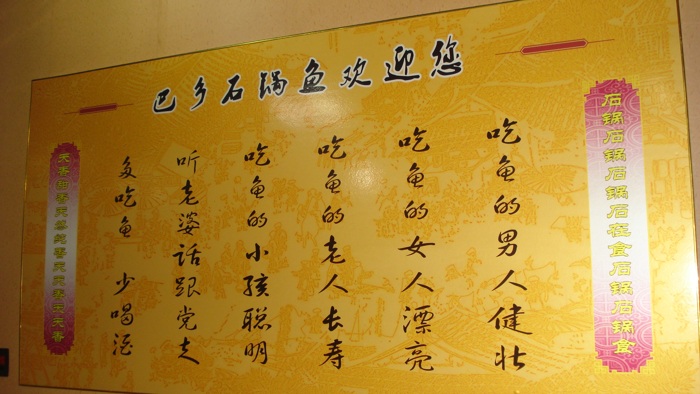 巴乡石锅鱼欢迎您
石锅石锅石锅石在食石锅石锅食
吃鱼的男人健壮
吃鱼的女人漂亮
吃鱼的老人长寿
吃鱼的小孩聪明
听老婆话跟党走
多吃鱼 少喝酒